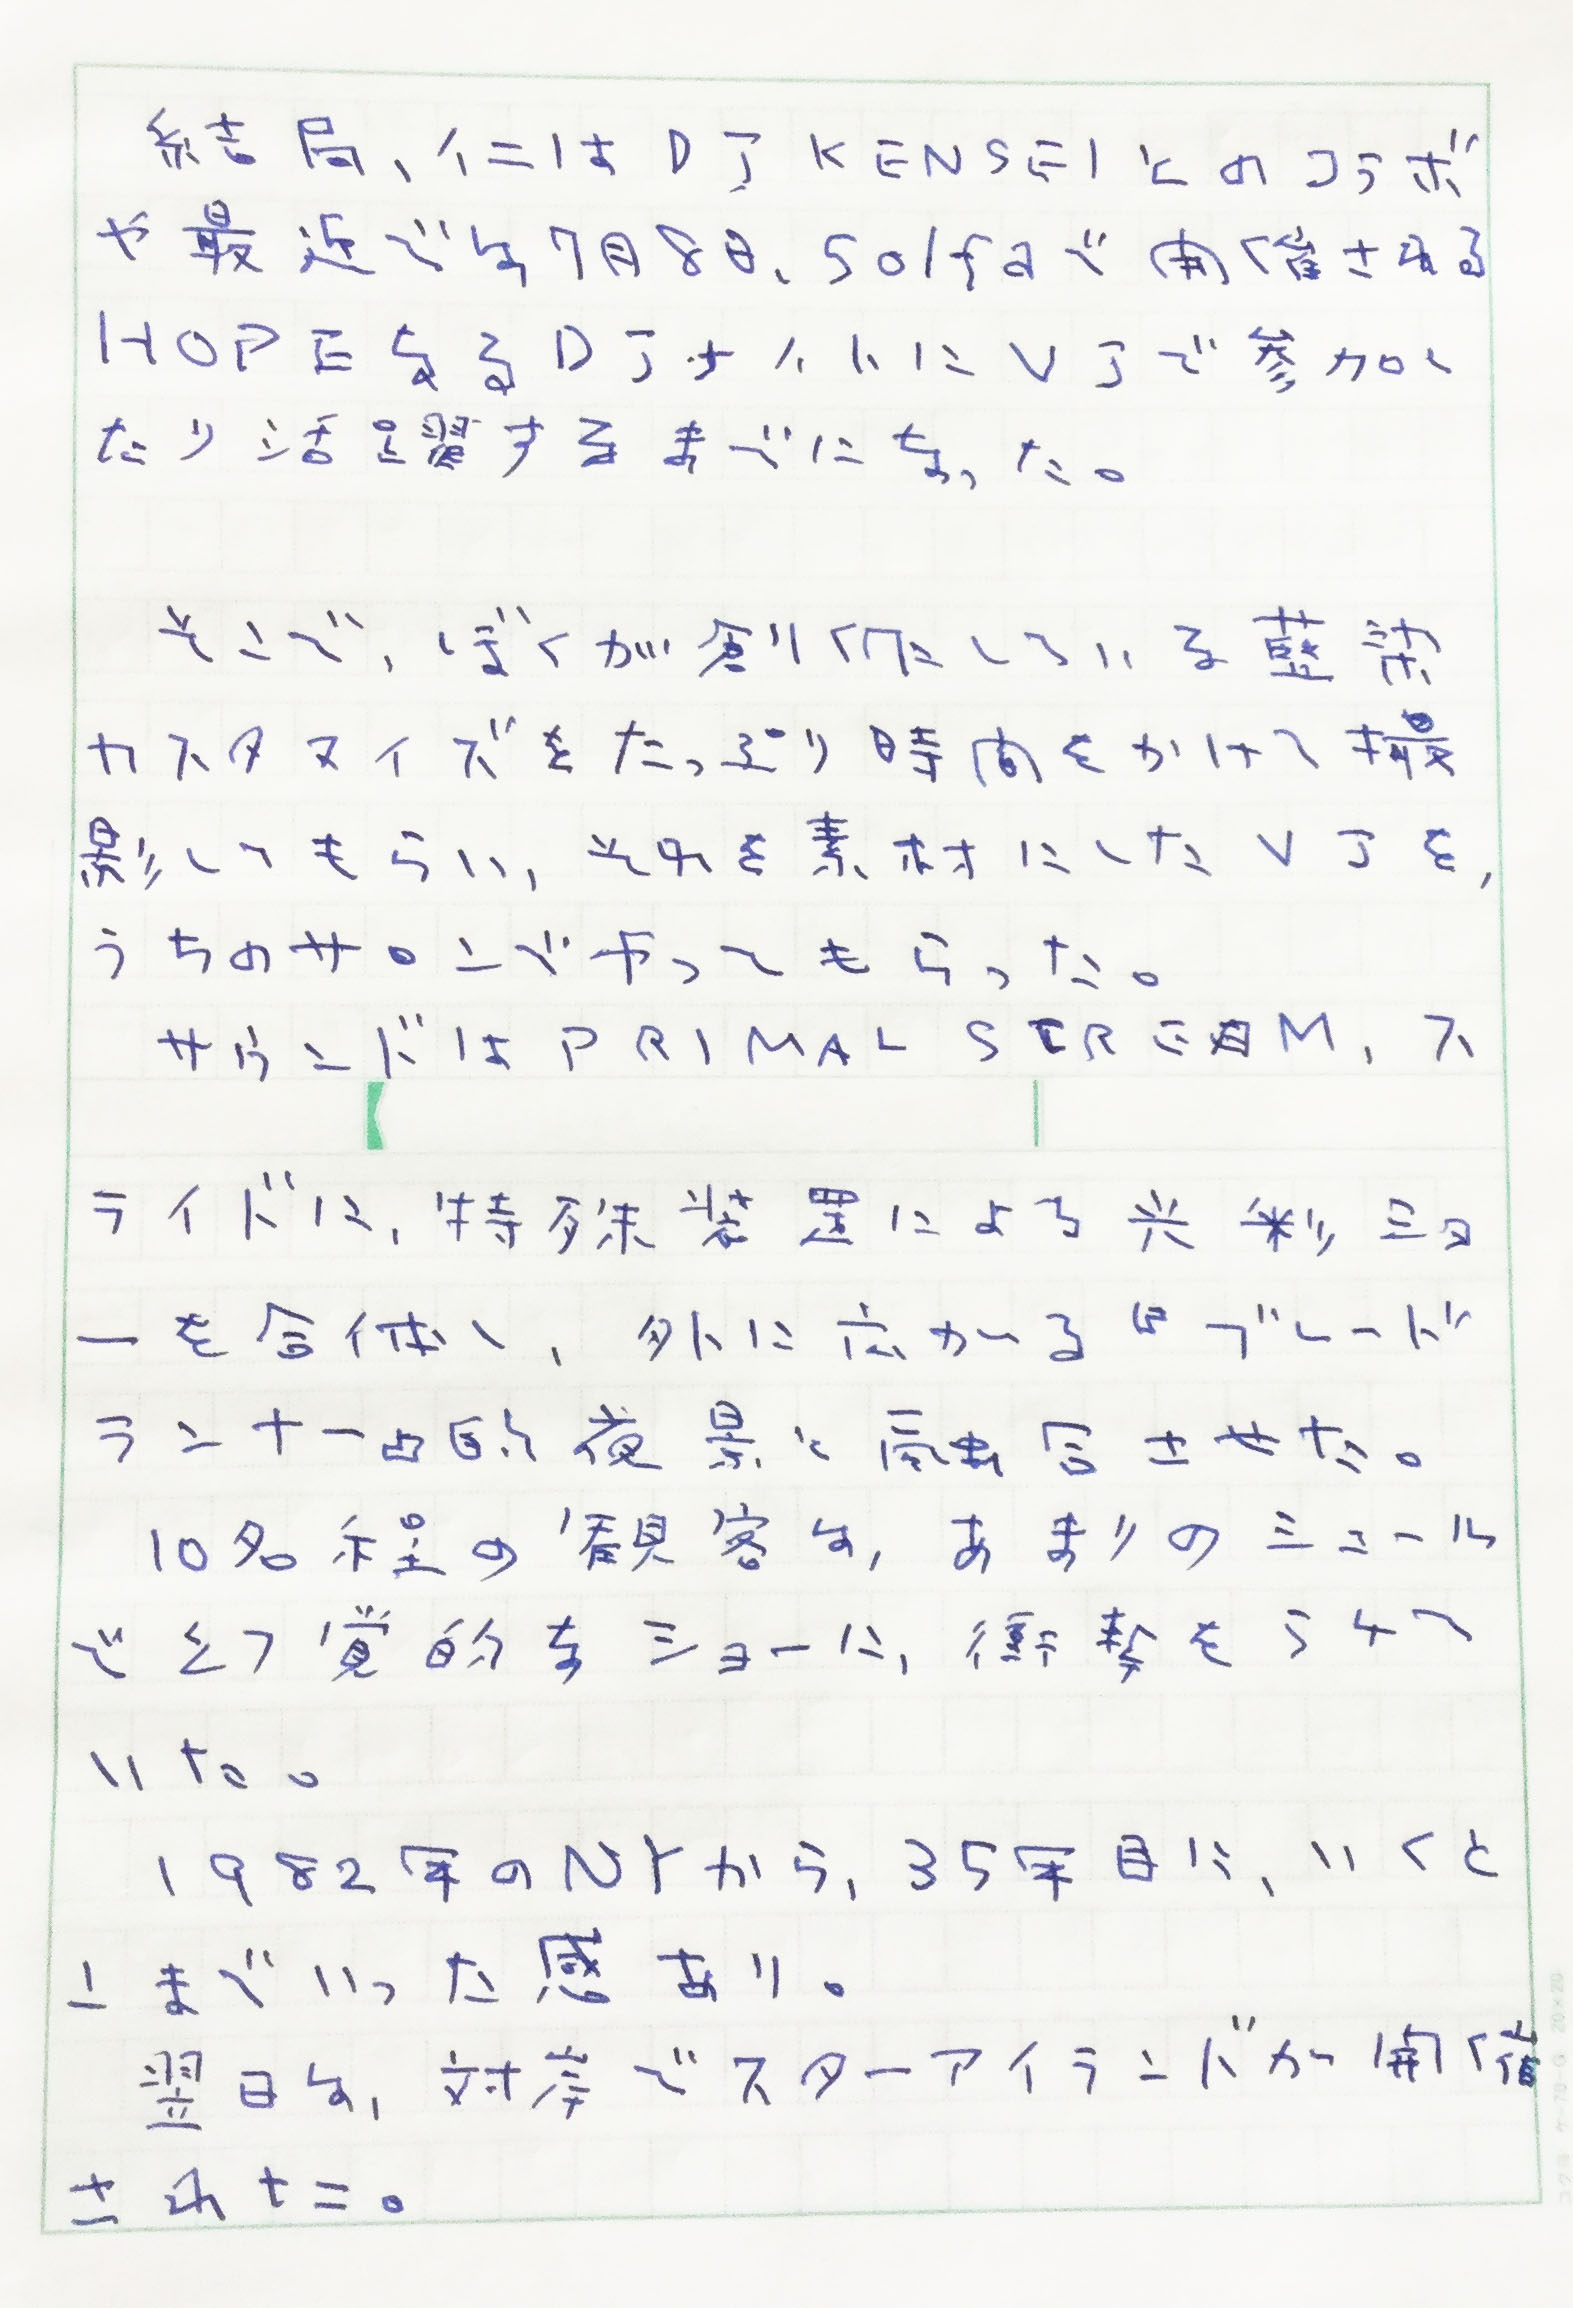 結局、仁はDJ KENSEIとのコラボ
や最近では7月8日、solfaで開催される
HOPEなるDJナイトにVJで参加し
たり活躍するまでになった。
そこで、ぼくが創作している藍染
カスタマイズをたっぷり時間をかけて撮
影してもらい、それを素材にしたVJを、
うちのサロンでやってもらった。
サウンドはPRIMAL SCREAM、ス
ライドに、特殊装置による光彩ショ
ーを合体し、外に広がるブレード
ランナー的夜景と融合させた。
10名程の観客は、あまりのシュール
で幻覚的なショーに、衝撃をうけて
いた。
1982年のNYから、35年目に、いくと
こまでいった感あり。
翌日は、対岸でスターアイランドが開催
された。